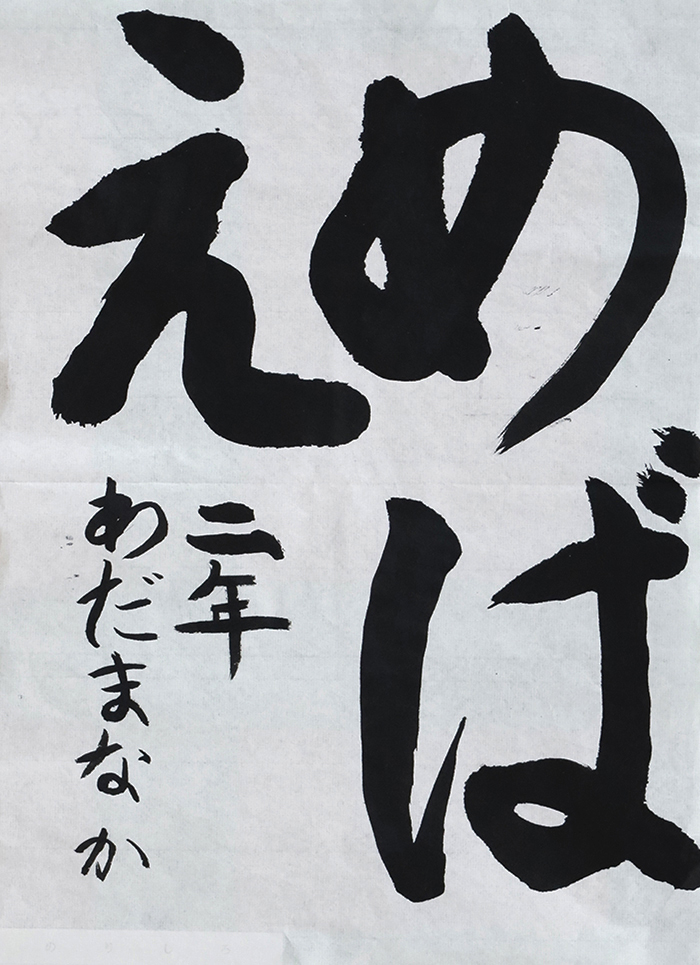 めば
え
二年
わだまなか